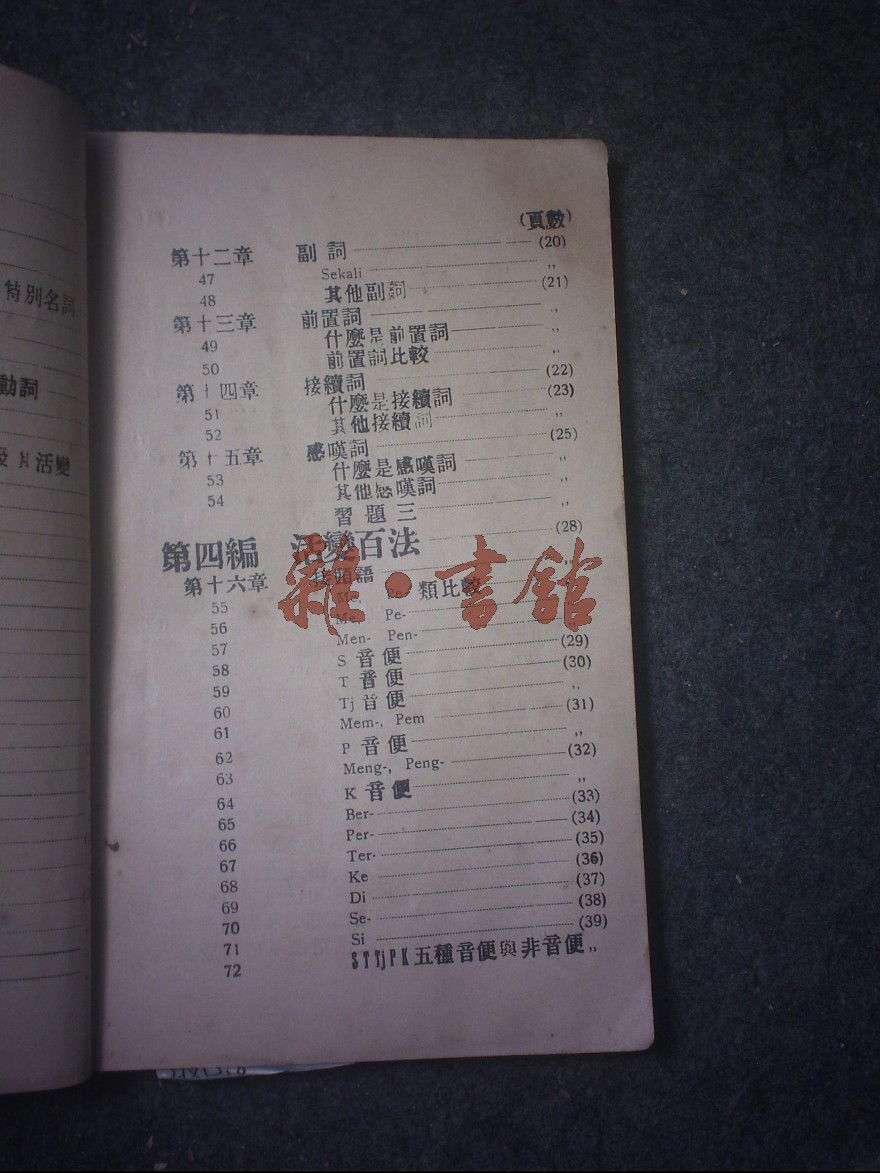 特別名詞
動詞
片活變
(頁數)
第十二章 副詞 (20)
47 Sekali ,,
48 其他副詞 (21)
第十三章 前置詞 ,,
49 什麼是前置詞 ,,
50 前置詞比較 ,,
第十四章 接續詞 (22)
51 什麼是接續詞 (23)
52 其他接續詞 ,,
第十五章 感嘆詞 (25)
53 什麼是感嘆詞 ,,
54 其他感嘆詞 ,,
習題三 ,,
第四編 活變百法 (28)
第十六章 接頭語 ,,
55 Me, Pe 類比較
56 Me, Pe-
57 Men- Pen- (29)
58 S 音便 (30)
59 T 音便 ,,
60 Tj 音便 (31)
61 Mem-, Pem ,,
62 P 音便 (32)
63 Meng-, Peng- ,,
64 K 音便 (33)
65 Ber- (34)
66 Per- (35)
67 Ter- (36)
68 Ke (37)
69 Di (38)
70 Se- (39)
71 Si
72 S T Tj P K 五種音便與非音便 ,,
雜·書館